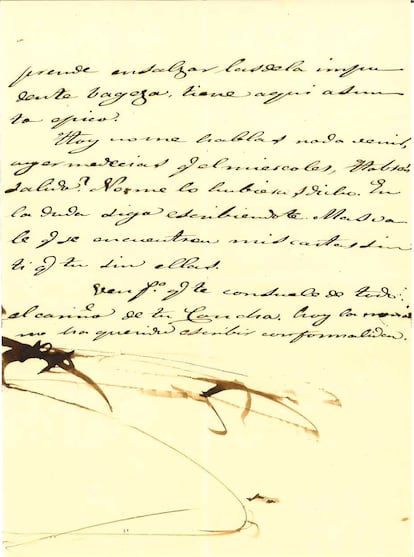 prende ensalzar las de la impu
dente bageza, tiene aqui asun
to epico.
Hoy no me hablas nada venir,
ayer me decias q.e el miercoles,
salido? No me lo hubieras dicho. En
la duda sigo escribiendote. Mas va
le q.e se encuentren mis cartas sin
ti q.e tu sin ellas.
Ven p.a q.e te consuele de todo
el cariño de tu Concha, hoy la
no ha querido escribir con formalidad.